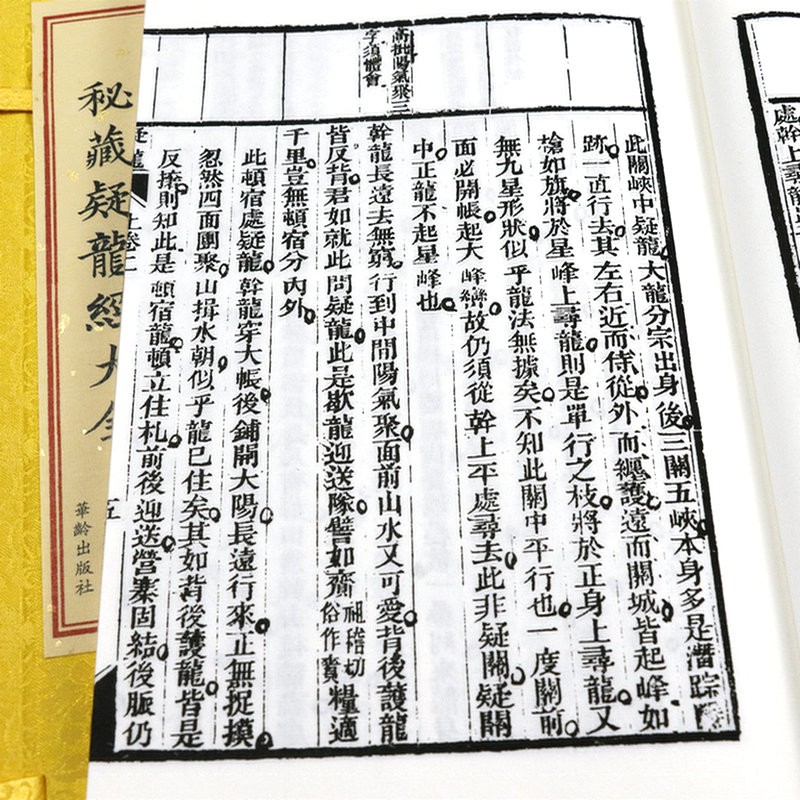 處幹上尋龍
高批陽氣聚三
字須體會
此關峽中疑龍大龍分宗出身後三關五峽本身多是潛踪
跡一直行去其左右近而侍從外而纏護遠而關城皆起峰如
槍如旗將於星峰上尋龍則是單行之枝將於正身上尋龍又
無九星形狀似乎龍法無據矣不知此關中平行也一度關前
面必開帳起大峰巒故仍須從幹上平處尋去此非疑關疑關
中正龍不起星峰也
幹龍長遠去無窮行到中間陽氣聚面前山水又可愛背後護龍
皆反背君如就此問疑龍此是歇龍迎送隊譬如齎祖稽切俗作賫糧適
千里豈無頓宿分內外
此頓宿處疑龍幹龍穿大帳後鋪開大陽長遠行來正無捉摸
忽然四面團聚山揖水朝似乎龍已住矣其如背後護龍皆是
反揍則知此是頓宿龍頓立住札前後迎送營寨固結後脈仍
疑龍 上卷二 五
秘藏疑龍經大全
華齡出版社